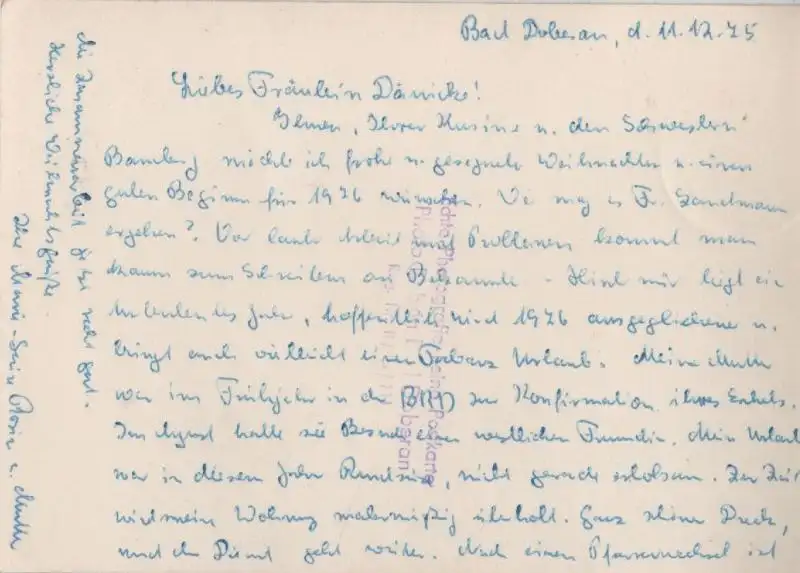 Bad Doberan, d. 11.12.75
Liebes Fräulein Dänicke!
Ihnen, Ihrer Kusine u. den Schwestern
Bamberg möchte ich frohe u. gesegnete Weihnachten u. einen
guten Beginn für 1976 wünschen. Wie mag es Fr. Sandmann
ergehen? Vor lauter Arbeit und Problemen kommt man
kaum zum Schreiben an Bekannte. Hinter mir liegt ein
Jahr, hoffentlich wird 1976 ausgeglichener u.
bringt auch vielleicht einen Urlaub. Meine Mutter
war im Frühjahr in der BRD zur Konfirmation ihres Enkels.
Im August hatte sie Besuch einer westlichen Freundin. Mein Urlaub
war in diesem Jahr, nicht gerade erholsam. Zur Zeit
wird meine Wohnung malermäßig überholt. Ganz schöner Dreck,
und der Dienst geht weiter. Nach einem Pfarrerwechsel ist
die Zusammenarbeit jetzt recht gut.
Herzliche Weihnachtsgrüße
Ihre u. Mutter
Echte Photographie
Postkarte
Doberan